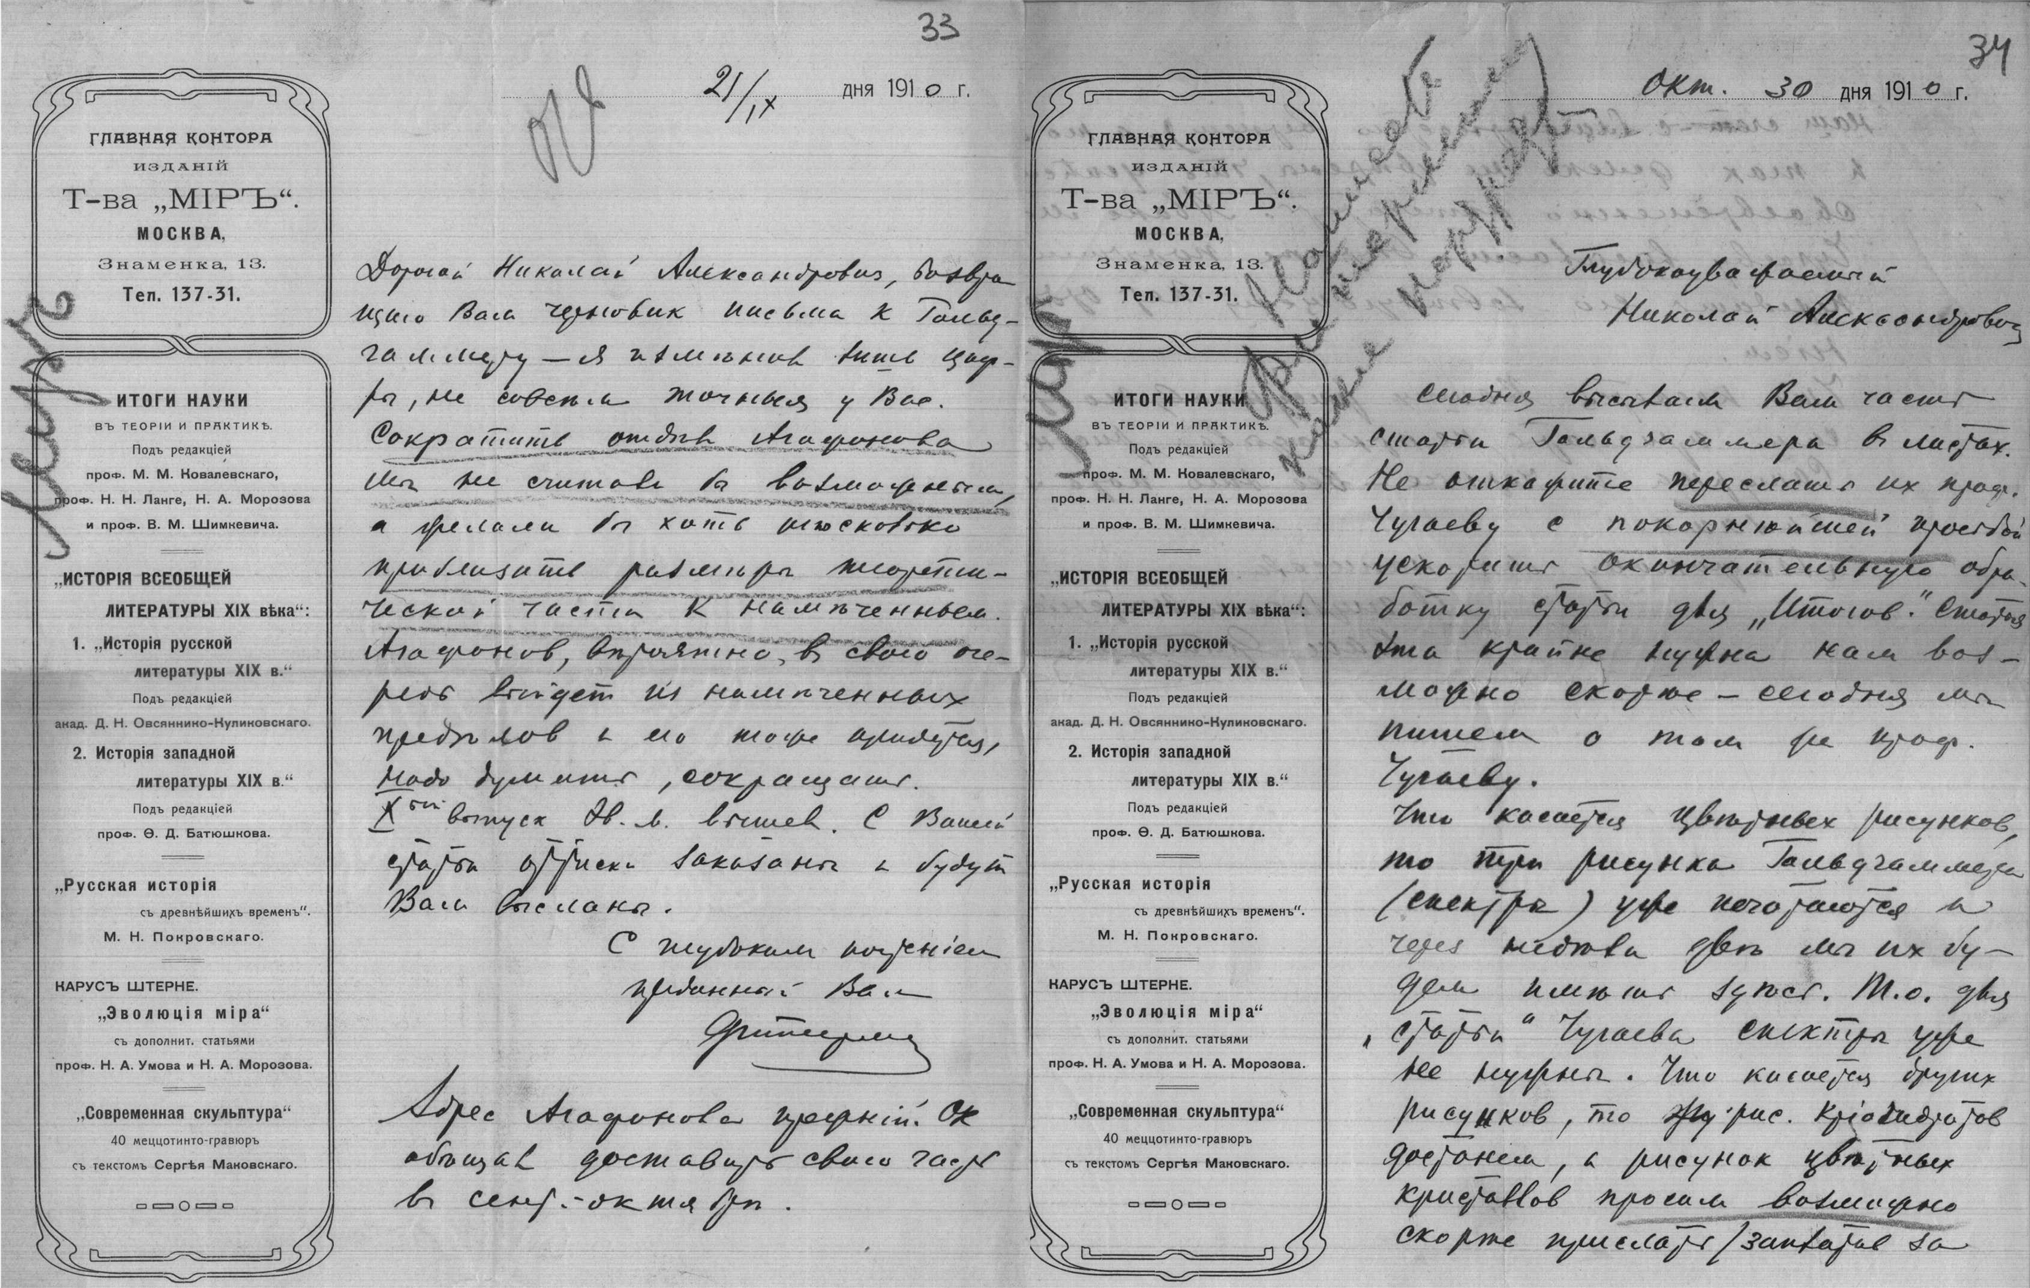 33
21/IX дня 1910 г.
ГЛАВНАЯ КОНТОРА
ИЗДАНІЙ
Т-ва „МІРЪ“.
МОСКВА,
Знаменка, 13.
Тел. 137-31.
ИТОГИ НАУКИ
ВЪ ТЕОРІИ И ПРАКТИКѢ.
Подъ редакціей
проф. М. М. Ковалевскаго,
проф. Н. Н. Ланге, Н. А. Морозова
и проф. В. М. Шимкевича.
„ИСТОРІЯ ВСЕОБЩЕЙ
ЛИТЕРАТУРЫ XIX вѣка“:
1. „Исторія русской
литературы XIX в.“
Подъ редакціей
акад. Д. Н. Овсяннико-Куликовскаго.
2. Исторія западной
литературы XIX в.“
Подъ редакціей
проф. Ѳ. Д. Батюшкова.
„Русская исторія
съ древнѣйшихъ временъ“.
М. Н. Покровскаго.
КАРУСЪ ШТЕРНЕ.
„Эволюція міра“
съ дополнит. статьями
проф. Н. А. Умова и Н. А. Морозова.
„Современная скульптура“
40 меццотинто-гравюръ
съ текстомъ Сергѣя Маковскаго.
Дорогой Николай Александрович, возвра
щаю Вам черновик письма к Гольд-
гаммеру — я изменив лишь циф-
ры, не совсем точныя у Вас.
Сократить отдѣл Агафонова
мы не считали б возможным,
а желали бы хоть несколько
приблизить размѣры теорети-
ческой части к намѣченным.
Агафонов, вѣроятно, в свою оче-
редь выйдет из намѣченных
предѣлов и его тоже придется,
надо думать, сокращать.
Xтый выпуск Эв. м. вышел. С Вашей
статьи оттиски заказаны и будут
Вам высланы.
С глубоким почтеніем
преданный Вам
Адрес Агафонова прежній. Он
обѣщал доставить свою часть
в сент.-октябрѣ.
34
Окт. 30 дня 1910 г.
ГЛАВНАЯ КОНТОРА
ИЗДАНІЙ
Т-ва „МІРЪ“.
МОСКВА,
Знаменка, 13.
Тел. 137-31.
ИТОГИ НАУКИ
ВЪ ТЕОРІИ И ПРАКТИКѢ.
Подъ редакціей
проф. М. М. Ковалевскаго,
проф. Н. Н. Ланге, Н. А. Морозова
и проф. В. М. Шимкевича.
„ИСТОРІЯ ВСЕОБЩЕЙ
ЛИТЕРАТУРЫ XIX вѣка“:
1. „Исторія русской
литературы XIX в.“
Подъ редакціей
акад. Д. Н. Овсяннико-Куликовскаго.
2. Исторія западной
литературы XIX в.“
Подъ редакціей
проф. Ѳ. Д. Батюшкова.
„Русская исторія
съ древнѣйшихъ временъ“.
М. Н. Покровскаго.
КАРУСЪ ШТЕРНЕ.
„Эволюція міра“
съ дополнит. статьями
проф. Н. А. Умова и Н. А. Морозова.
„Современная скульптура“
40 меццотинто-гравюръ
съ текстомъ Сергѣя Маковскаго.
Глубокоуважаемый
Николай Александрович
Сегодня высылаем Вам часть
статьи Гольдгаммера в листах.
Не откажите переслать их проф.
Чугаеву с покорнѣйшей просьбой
ускорить окончательную обра-
ботку статьи для „Итогов“. Статья
эта крайне нужна нам воз-
можно скорѣе — сегодня мы
пишем о том же проф.
Чугаеву.
Что касается цвѣтных рисунков,
то три рисунка Гольдгаммера
(спектры) уже печатаются и
через недѣли двѣ мы их бу-
дем имѣть здѣсь. Т.о. для
„статьи“ Чугаева спектры уже
не нужны. Что касается других
рисунков, то рис. кріогидратов
достанем, а рисунок цвѣтных
кристаллов просим возможно
скорѣе прислать (заплатив за